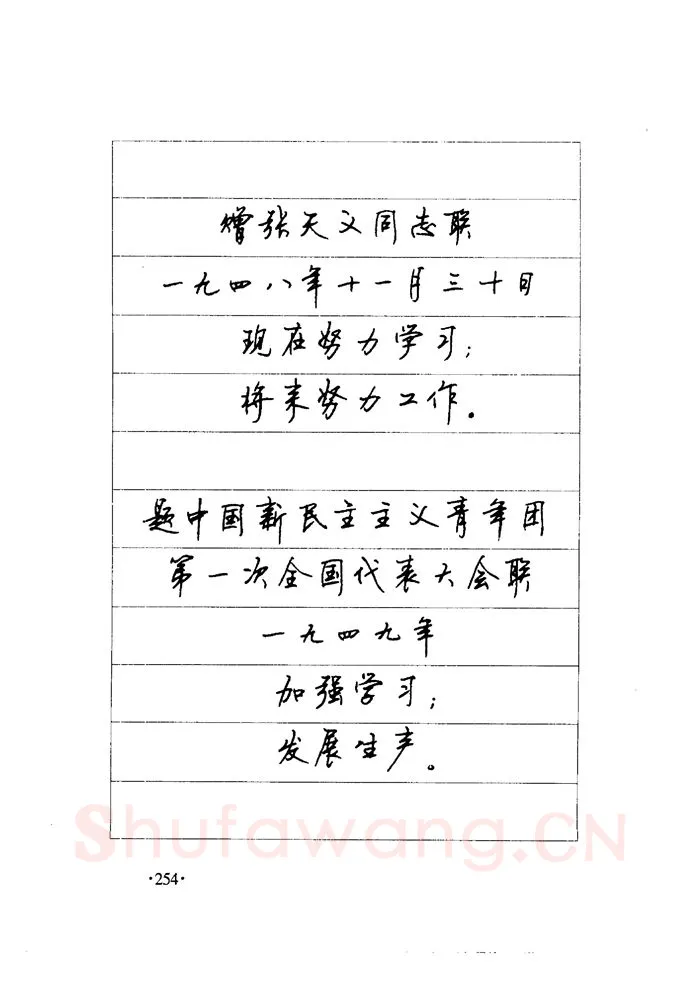 赠张天义同志联
一九四八年十一月三十日
现在努力学习；
将来努力工作。
题中国新民主主义青年团
第一次全国代表大会联
一九四九年
加强学习；
发展生产。
Shufawang.CN
·254·